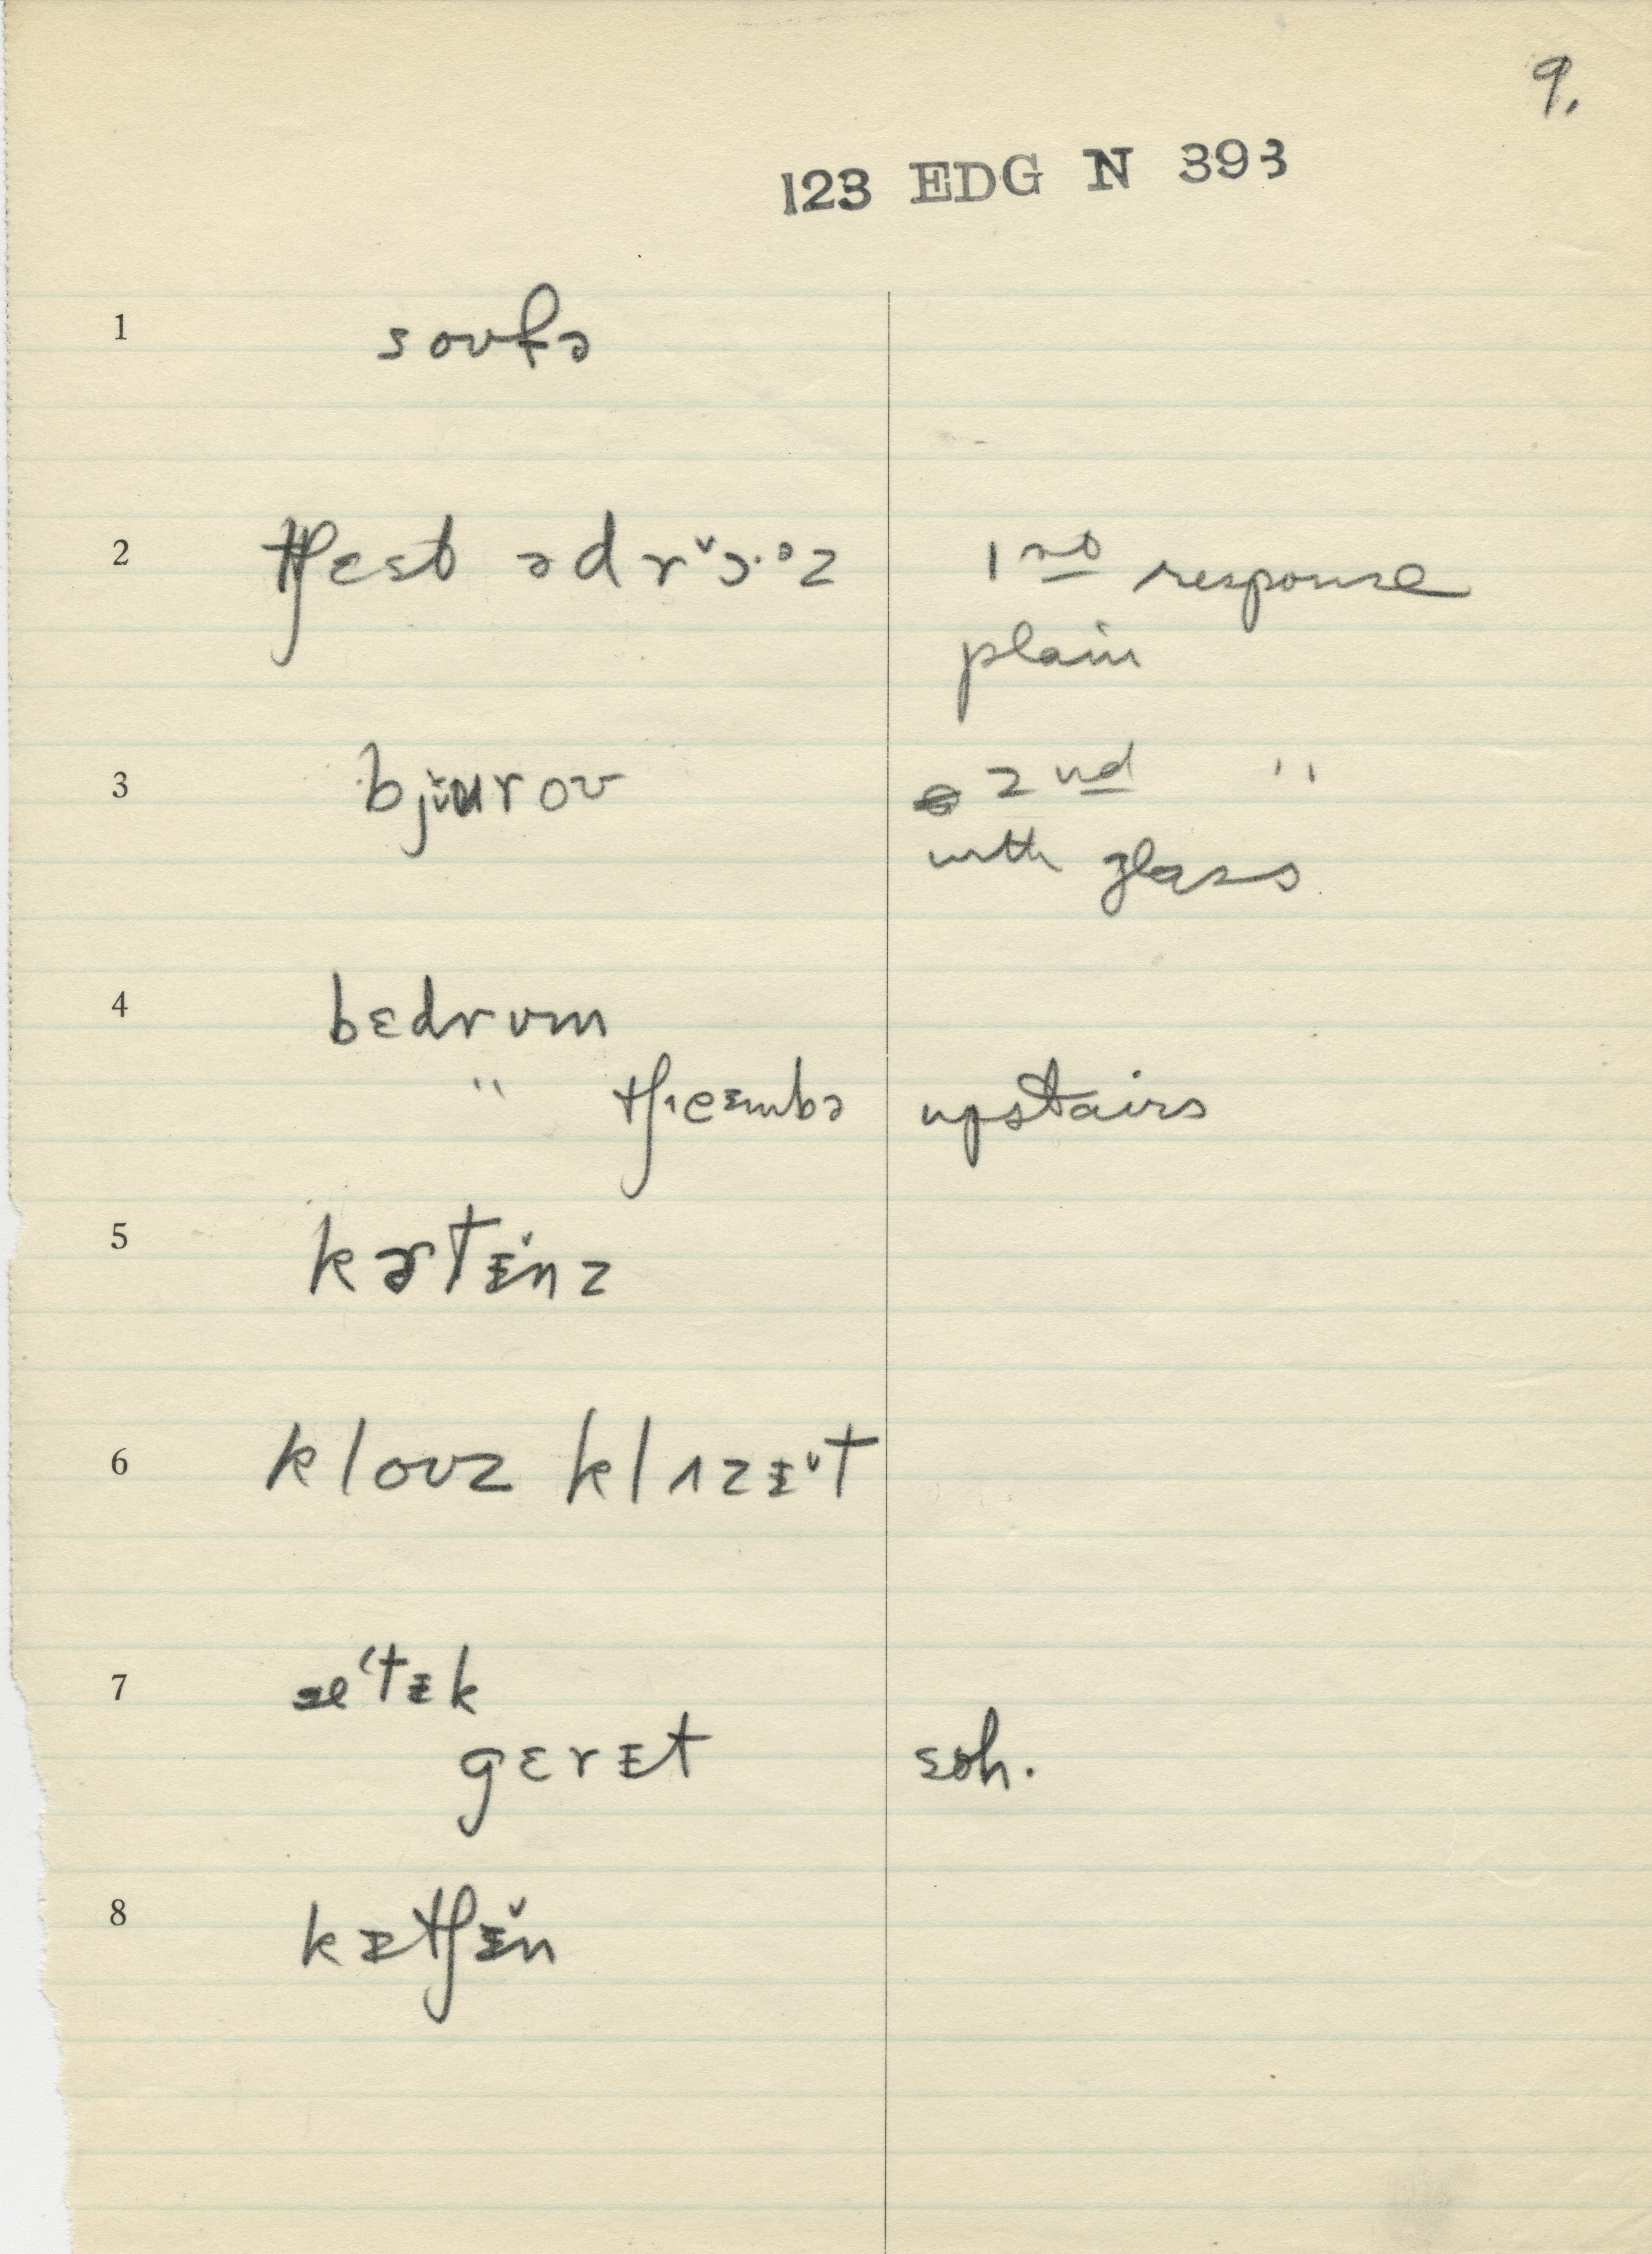 9.
123 EDG N 393
1 soʊfə
2 tʃest ədrɔ̌·ᵊz 1st response
plain
3 bjʊ̌roʊ 2nd "
with glass
4 bɛdrʊm
" tʃeɪmbə upstairs
5 kɚtᵻ̌nz
6 kloʊz klɑzᵻ̌t
7 æ'tᵻk
gɛrᵻt soh.
8 kᵻtʃᵻ̌n